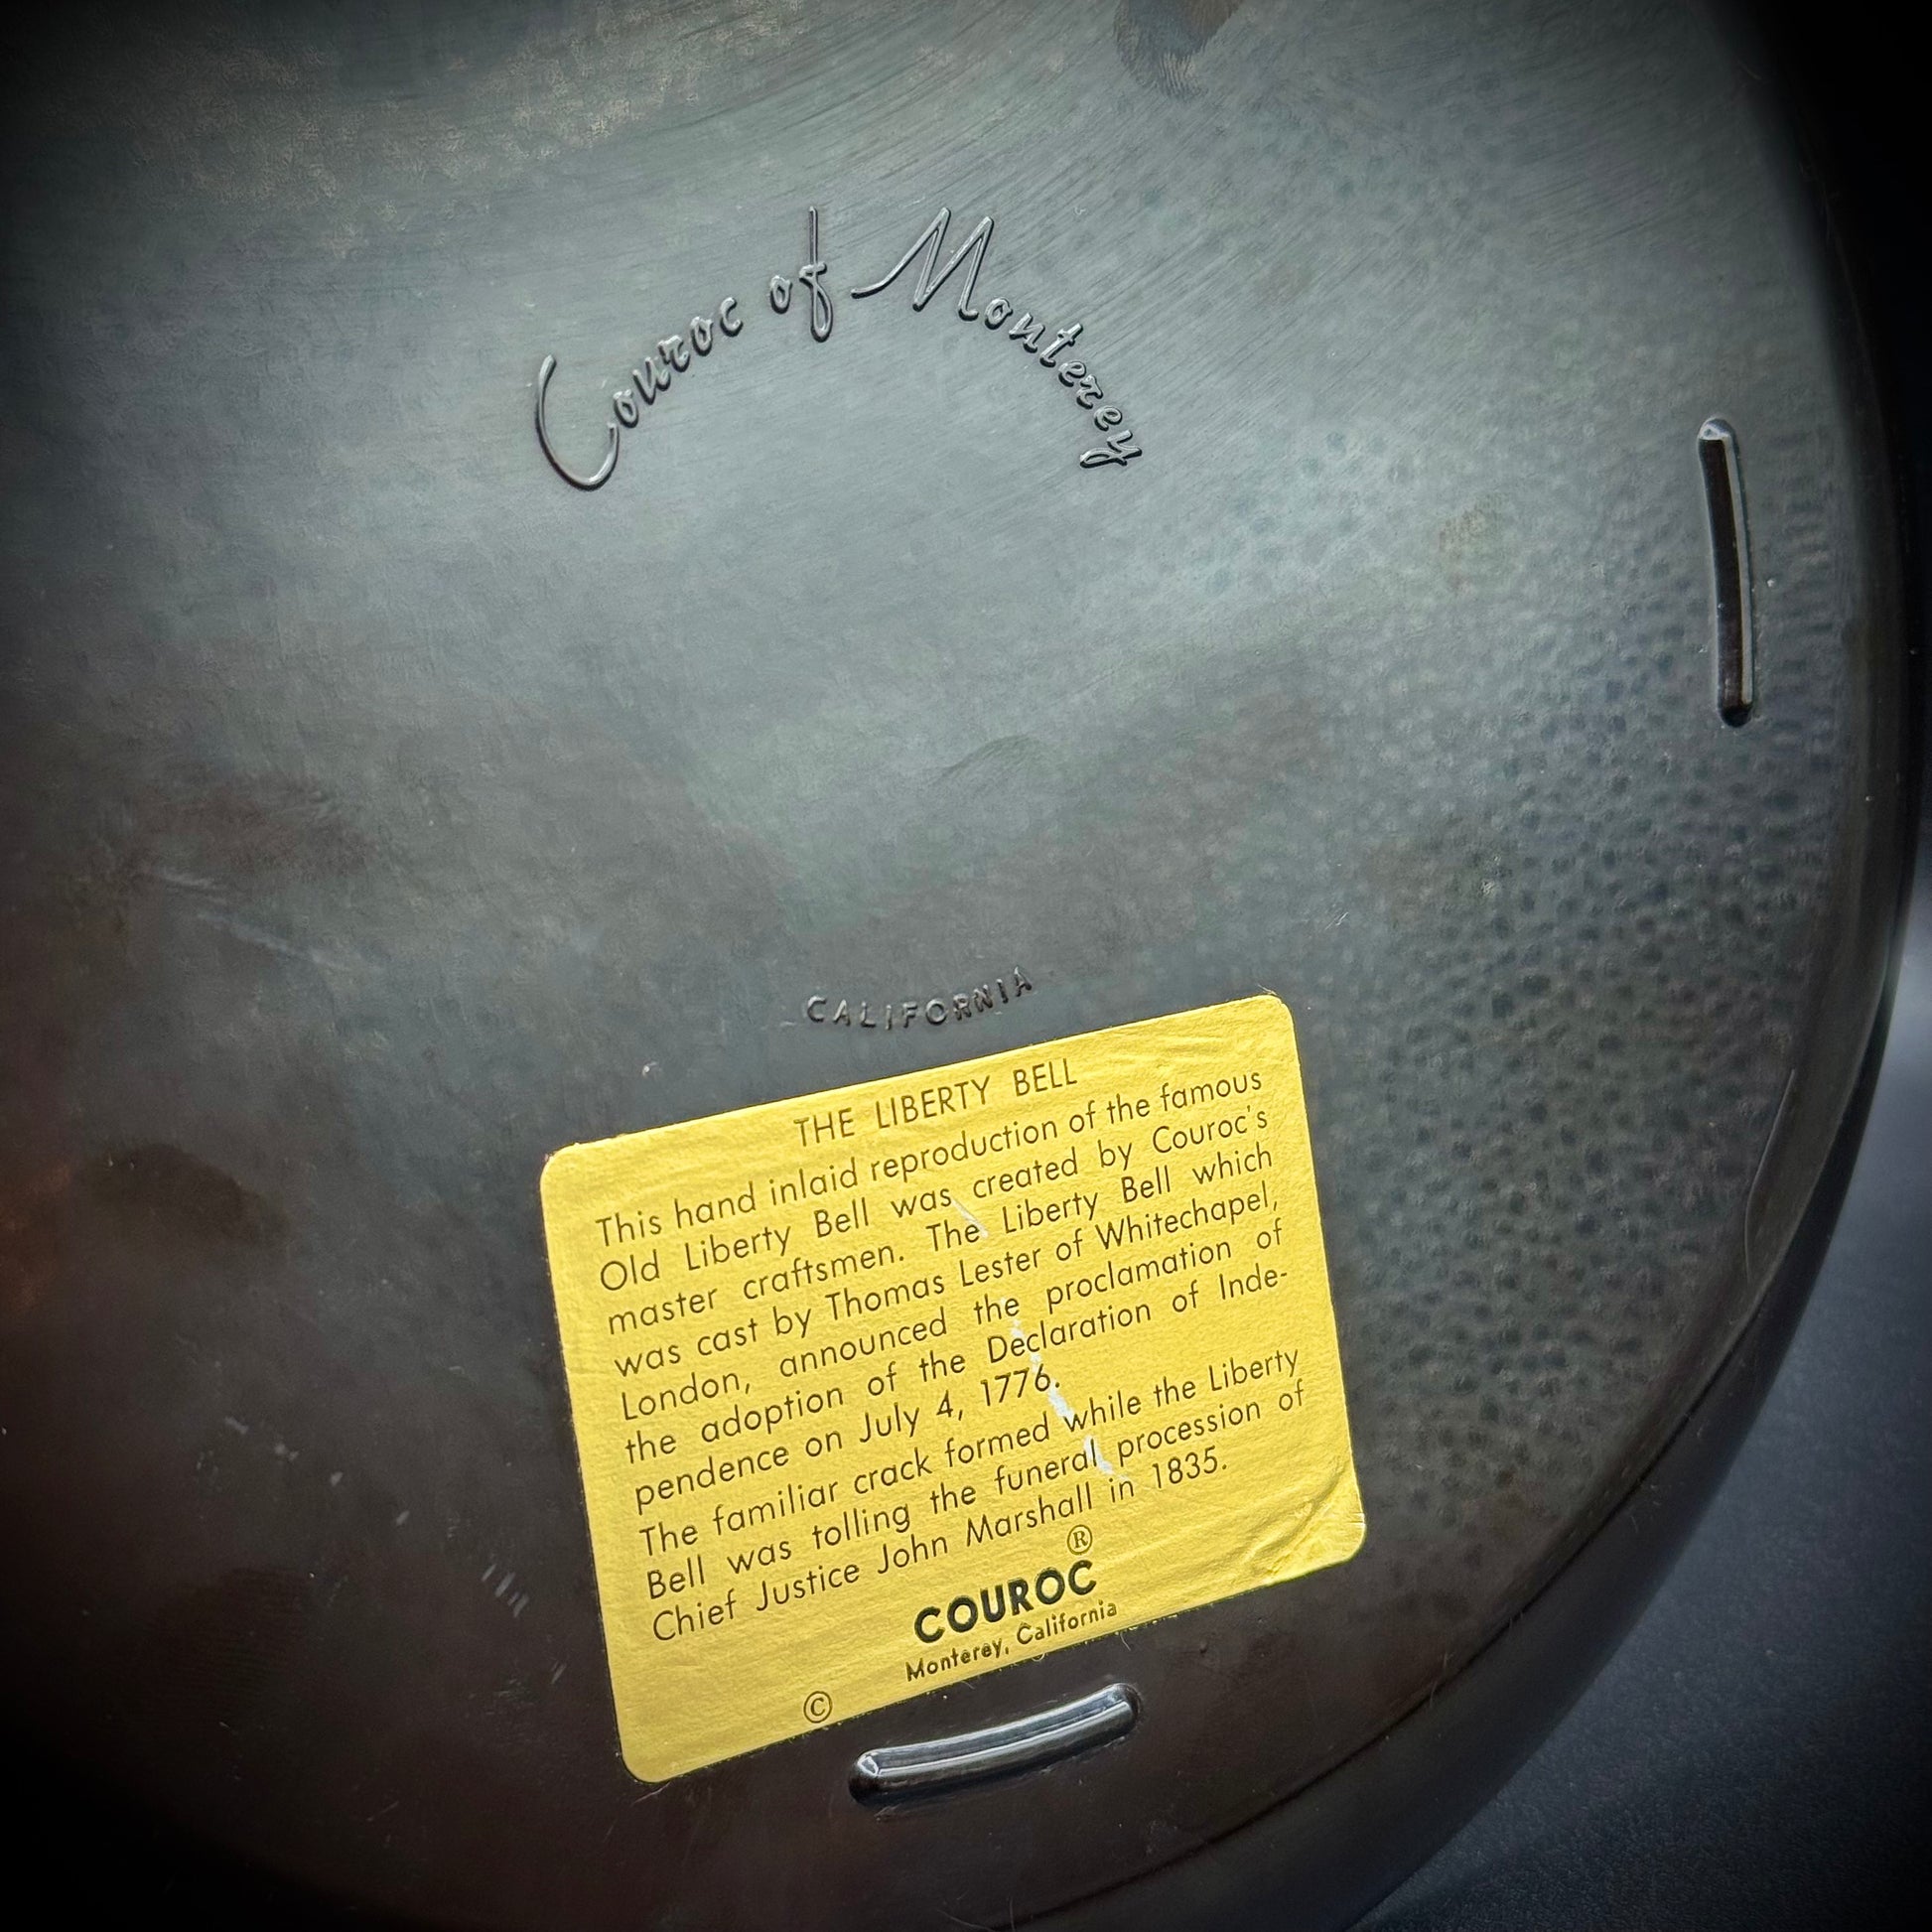 Couroc of Monterey
CALIFORNIA
THE LIBERTY BELL
This hand inlaid reproduction of the famous
Old Liberty Bell was created by Couroc's
master craftsmen. The Liberty Bell which
was cast by Thomas Lester of Whitechapel,
London, announced the proclamation of
the adoption of the Declaration of Inde-
pendence on July 4, 1776.
The familiar crack formed while the Liberty
Bell was tolling the funeral procession of
Chief Justice John Marshall in 1835.
®
COUROC
Monterey, California
©